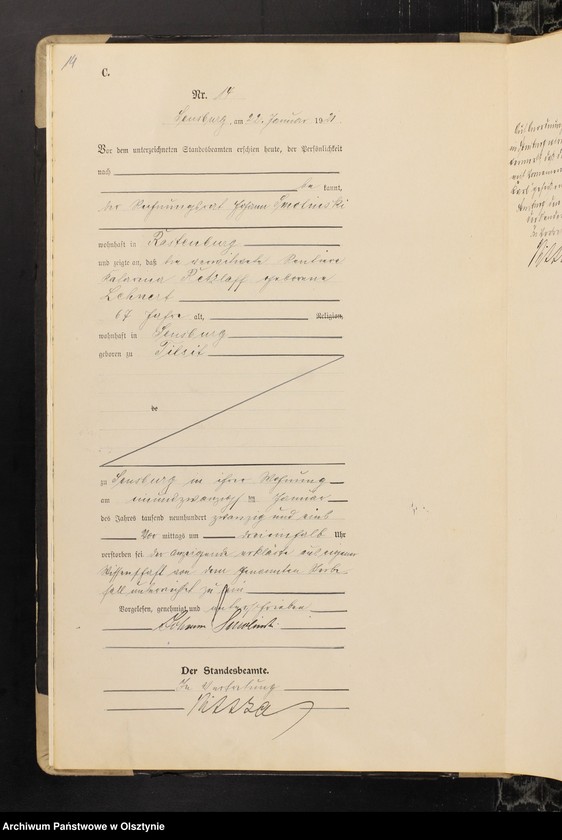 14
C.
Nr. 14
Sensburg, am 22. Januar 1921.
Vor dem unterzeichneten Standesbeamten erschien heute, der Persönlichkeit
nach
be kannt,
der Rechnungsrat Johann
wohnhaft in Rastenburg
und zeigte an, daß die verwitwete Rentiere
Katarina Retzlaff geborene
Lehnert
67 Jahre alt, Religion,
wohnhaft in Sensburg
geboren zu Tilsit
zu Sensburg in ihrer Wohnung
am einundzwanzigsten Januar
des Jahres tausend neunhundert zwanzig und eins
Vor mittags um dreieinhalb Uhr
verstorben sei. Der Anzeigende erklärte aus eigener
Wissenschaft von dem genannten Sterbe-
fall unterrichtet zu sein
Vorgelesen, genehmigt und unterschrieben
Johann
Der Standesbeamte.
In Vertretung
Archiwum Państwowe w Olsztynie